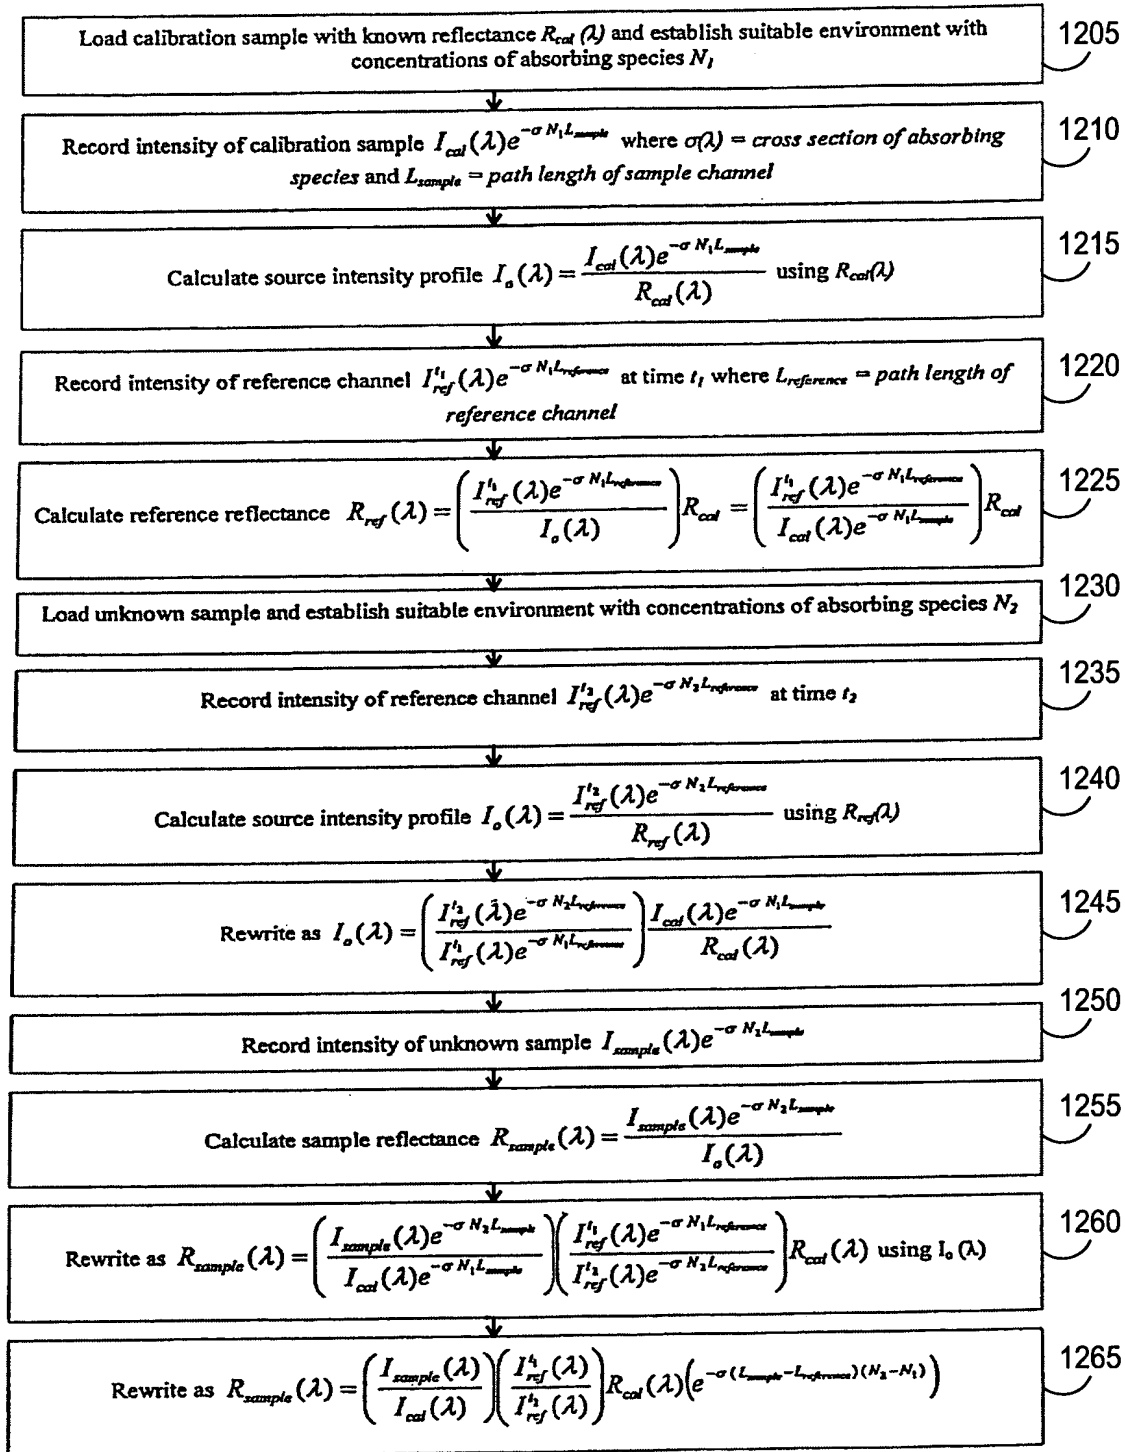 Load calibration sample with known reflectance R_cal(λ) and establish suitable environment with
concentrations of absorbing species N_1
1205
Record intensity of calibration sample I_cal(λ)e^{-σ N_1 L_sample} where σ(λ) = cross section of absorbing
species and L_sample = path length of sample channel
1210
Calculate source intensity profile I_o(λ) = \frac{I_cal(λ)e^{-σ N_1 L_sample}}{R_cal(λ)} using R_cal(λ)
1215
Record intensity of reference channel I_ref^{t_1}(λ)e^{-σ N_1 L_reference} at time t_1 where L_reference = path length of
reference channel
1220
Calculate reference reflectance R_ref(λ) = (\frac{I_ref^{t_1}(λ)e^{-σ N_1 L_reference}}{I_o(λ)}) R_cal = (\frac{I_ref^{t_1}(λ)e^{-σ N_1 L_reference}}{I_cal(λ)e^{-σ N_1 L_sample}}) R_cal
1225
Load unknown sample and establish suitable environment with concentrations of absorbing species N_2
1230
Record intensity of reference channel I_ref^{t_2}(λ)e^{-σ N_2 L_reference} at time t_2
1235
Calculate source intensity profile I_o(λ) = \frac{I_ref^{t_2}(λ)e^{-σ N_2 L_reference}}{R_ref(λ)} using R_ref(λ)
1240
Rewrite as I_o(λ) = (\frac{I_ref^{t_2}(λ)e^{-σ N_2 L_reference}}{I_ref^{t_1}(λ)e^{-σ N_1 L_reference}}) \frac{I_cal(λ)e^{-σ N_1 L_sample}}{R_cal(λ)}
1245
Record intensity of unknown sample I_sample(λ)e^{-σ N_2 L_sample}
1250
Calculate sample reflectance R_sample(λ) = \frac{I_sample(λ)e^{-σ N_2 L_sample}}{I_o(λ)}
1255
Rewrite as R_sample(λ) = (\frac{I_sample(λ)e^{-σ N_2 L_sample}}{I_cal(λ)e^{-σ N_1 L_sample}})(\frac{I_ref^{t_1}(λ)e^{-σ N_1 L_reference}}{I_ref^{t_2}(λ)e^{-σ N_2 L_reference}}) R_cal(λ) using I_o(λ)
1260
Rewrite as R_sample(λ) = (\frac{I_sample(λ)}{I_cal(λ)})(\frac{I_ref^{t_1}(λ)}{I_ref^{t_2}(λ)}) R_cal(λ)(e^{-σ(L_sample-L_reference)(N_2-N_1)})
1265